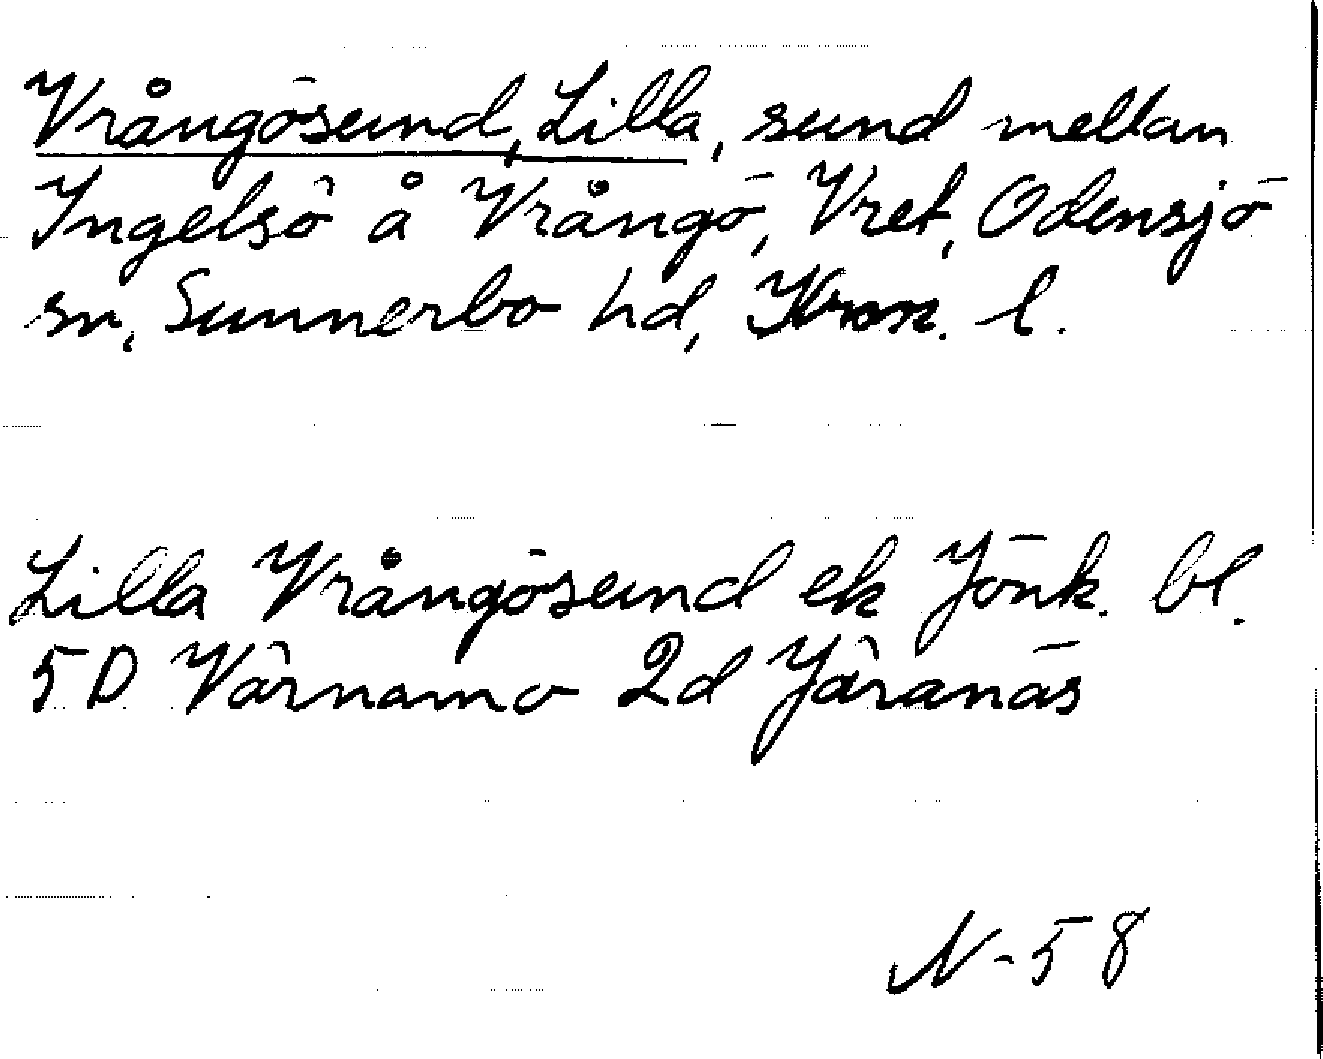 Vrångösund, Lilla, sund mellan
Ingelsö å Vrångö, Vret, Odensjö
sn, Sunnerbo hd, Kron. l.
Lilla Vrångösund ek Jönk. bl.
5D Värnamo 2d Järanäs
N-58